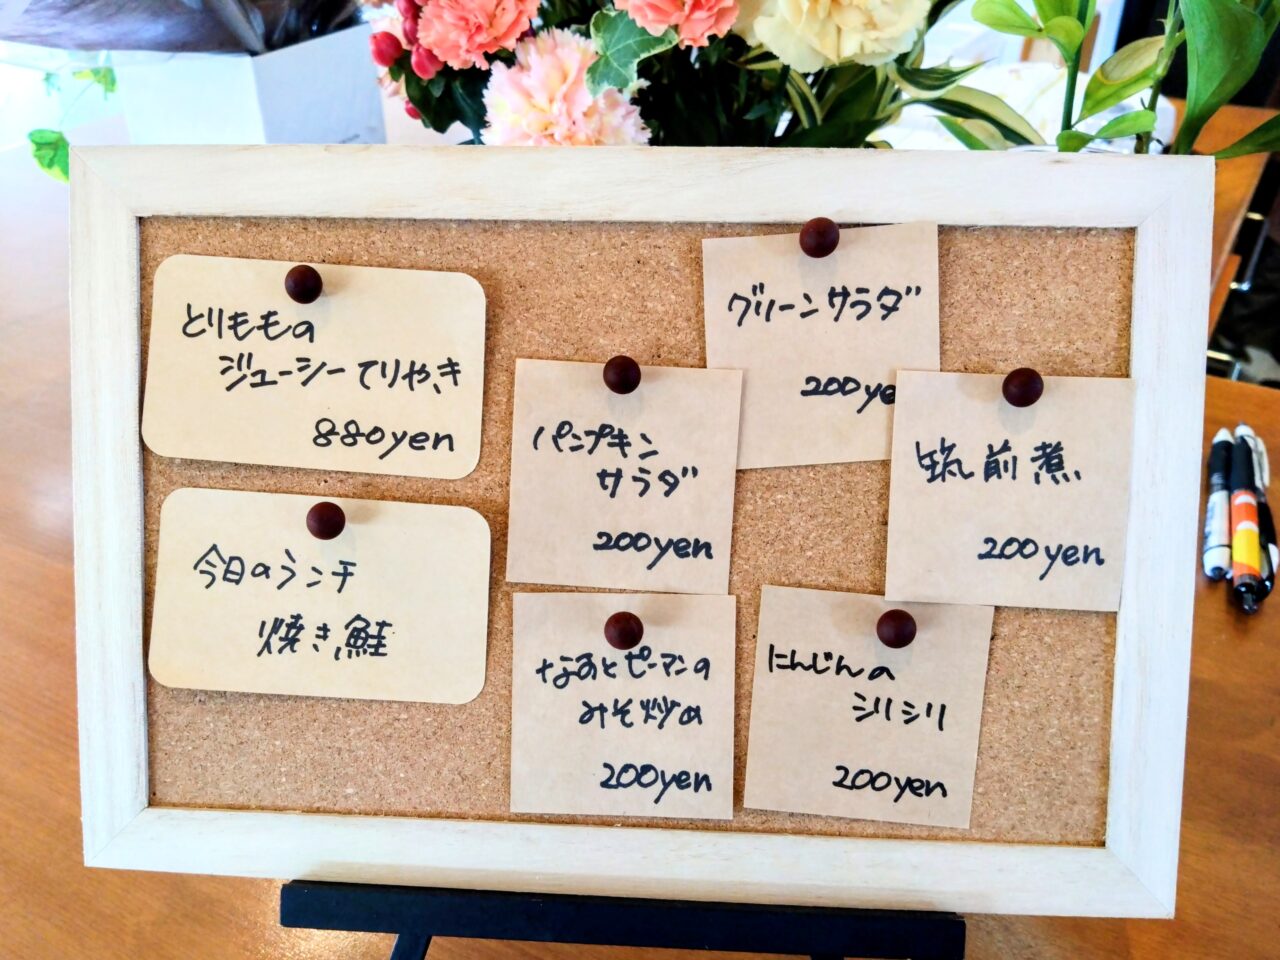 とりももの
ジューシーてりやき
880yen
今日のランチ
焼き鮭
グリーンサラダ
200ye
パンプキン
サラダ
200yen
筑前煮
200yen
なすとピーマンの
みそ炒め
200yen
にんじんの
シリシリ
200yen